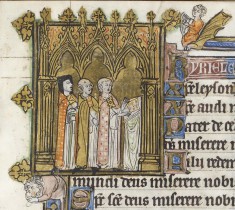 YRIEL
leyson
audi n
ater de ce
miserere n
ili redem
mundi deus miserere nobi
sc̄e deus miserere nobi